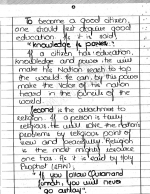 To become a good citizen,
one should first acquire good
education. As it is said,
"Knowledge is power."
If a citizen has education,
knowledge and power, he will
make his Nation reach to top
the world. He can by this power
make the voice of his nation
heard in the councils of the
world.
Second is the attachment to
religion. If a person is truly
religious, he will solve the nation's
problems by religious point of
view and peacefully. Religion
is the most mighty resource
one has. As it is said by Holy
Prophet (SAW),
"If you follow Quran and
Sunnah, you will never
go astray."